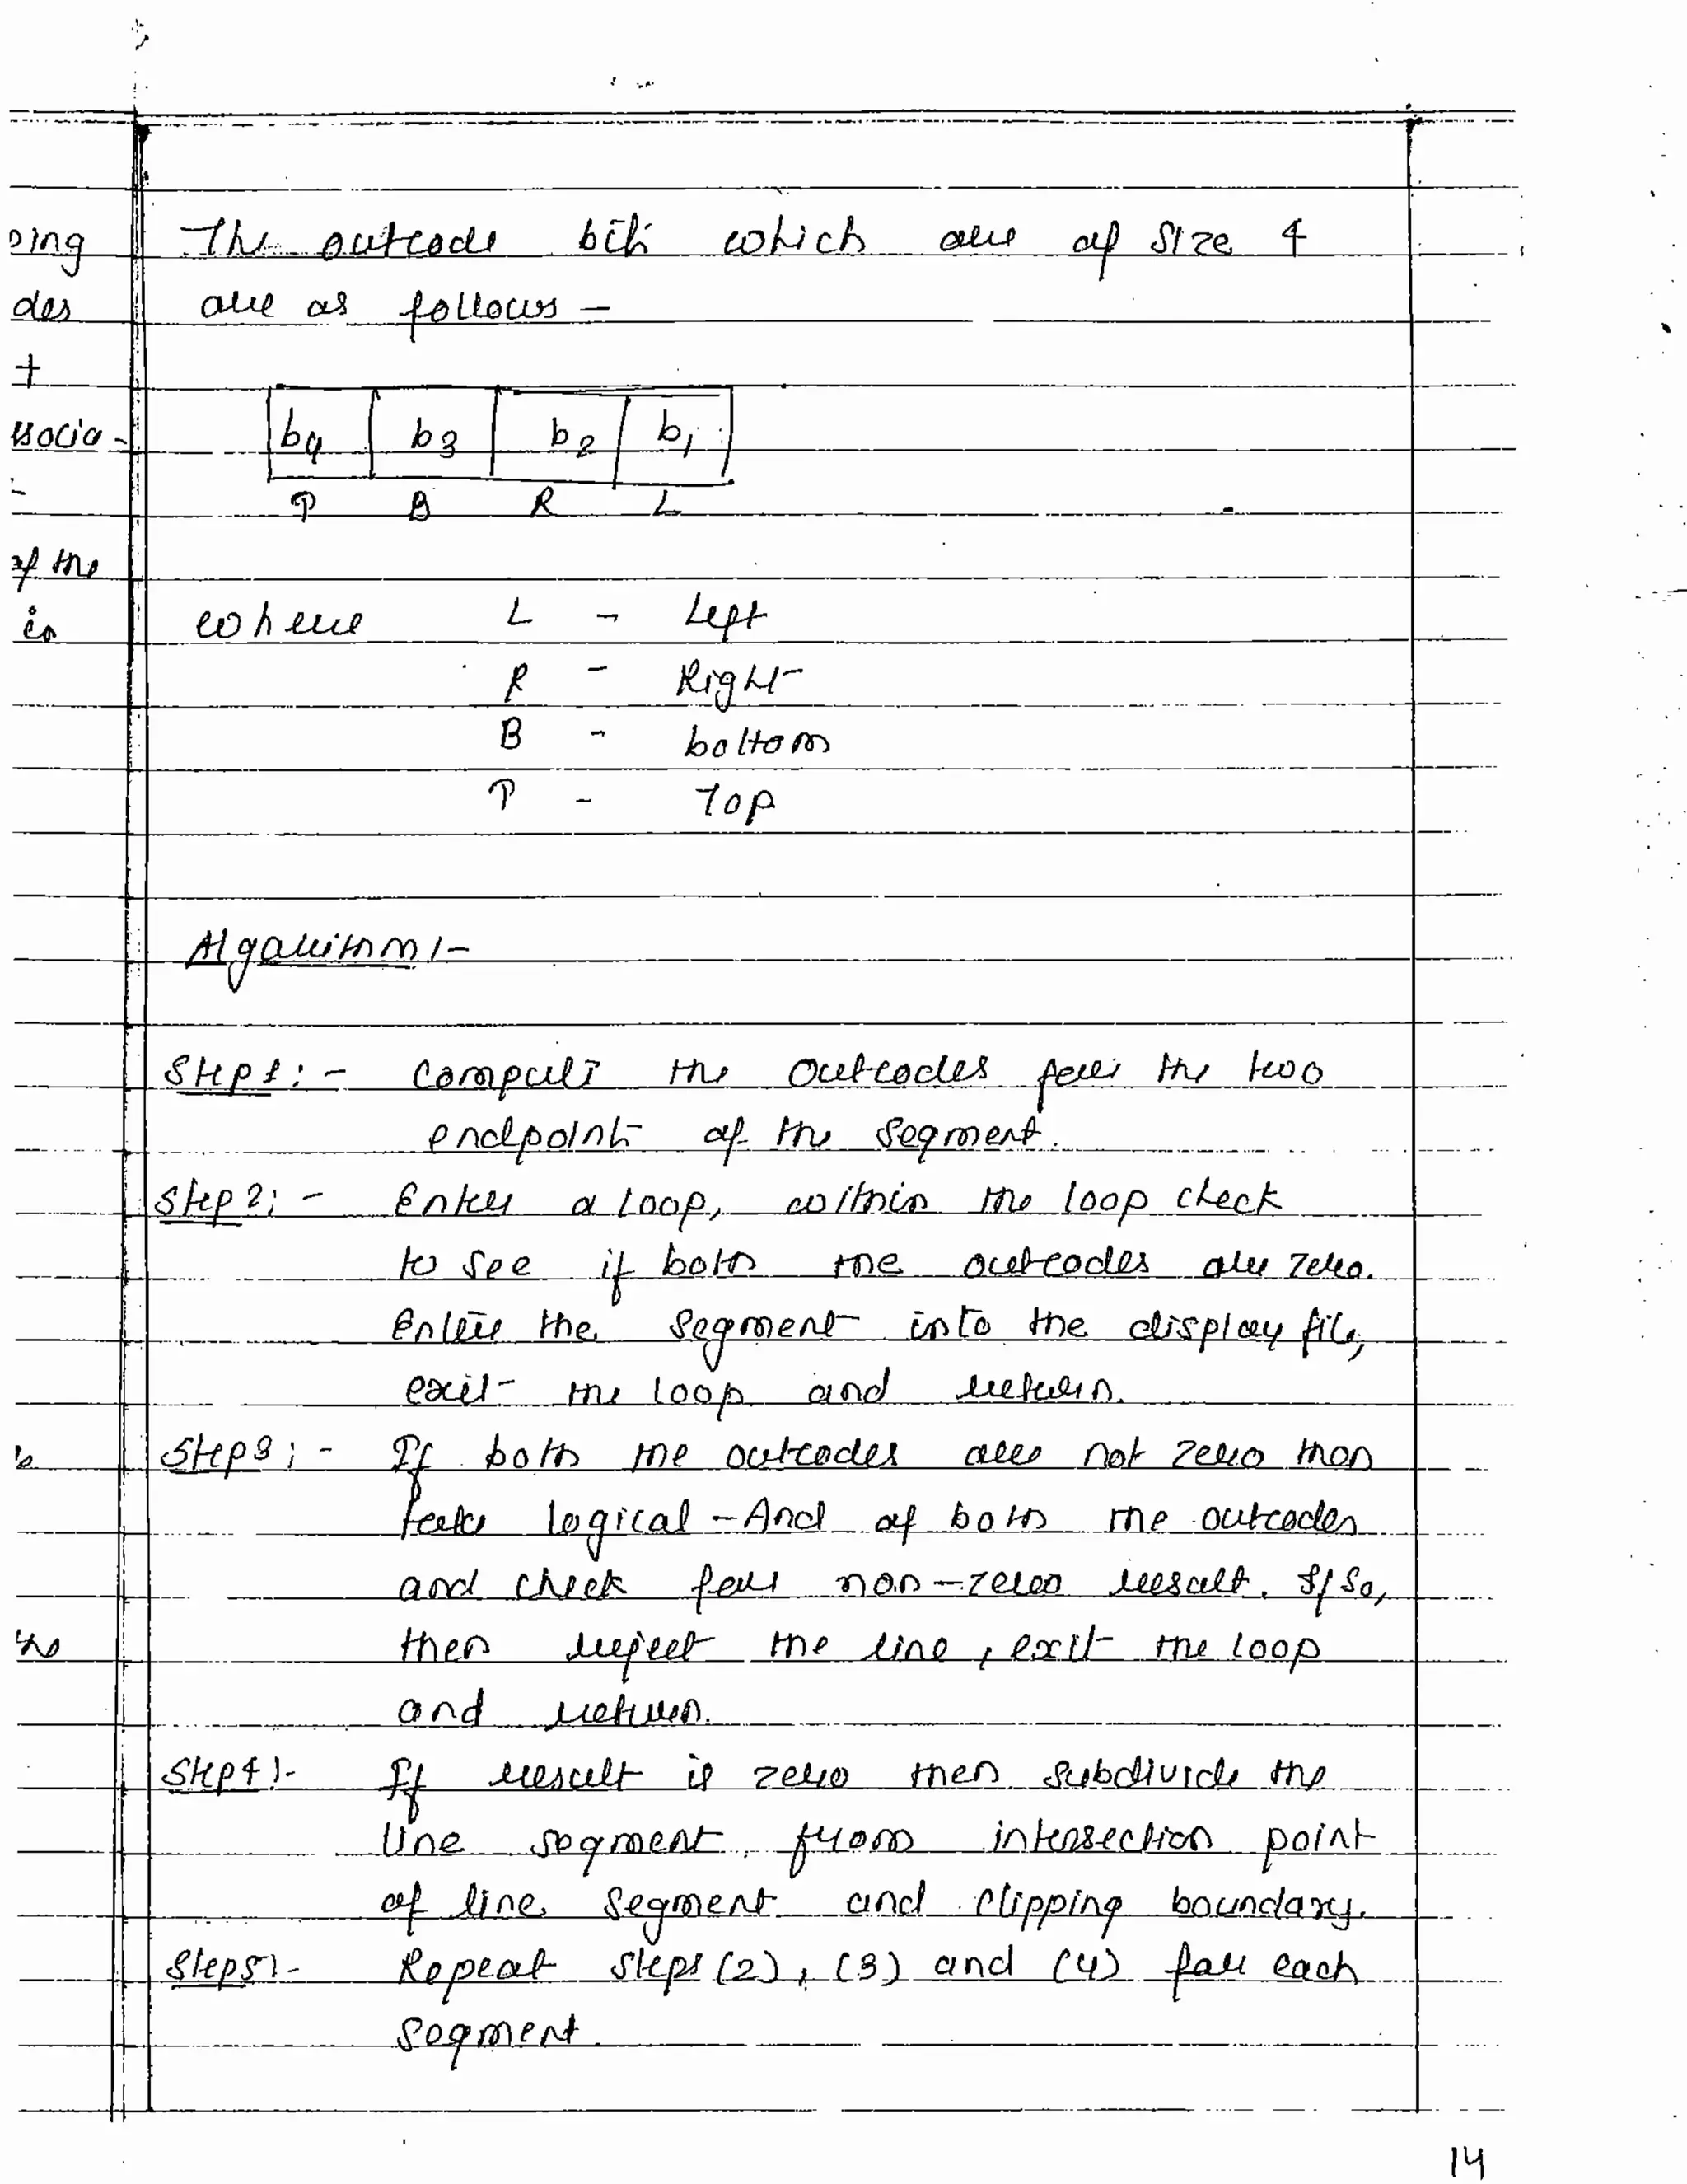 The outcode bits which are of size 4
are as follows –
b4 b3 b2 b1
T B R L
where L - Left
R - Right
B - bottom
T - Top
Algorithm :-
Step 1 : - Compute the Outcodes for the two
endpoints of the Segment.
Step 2 : - Enter a loop, within the loop check
to see if both the outcodes are zero.
Enter the segment into the display file,
exit the loop and return.
Step 3 ; - If both the outcodes are not zero then
take logical - And of both the outcodes
and check for non-zero result. If so,
then reject the line, exit the loop
and return.
Step 4 :- If result is zero then subdivide the
line segment from intersection point
of line segment and clipping boundary.
Step 5 :- Repeat steps (2), (3) and (4) for each
segment.
ping
des
t
ssocia -
of the
in
14